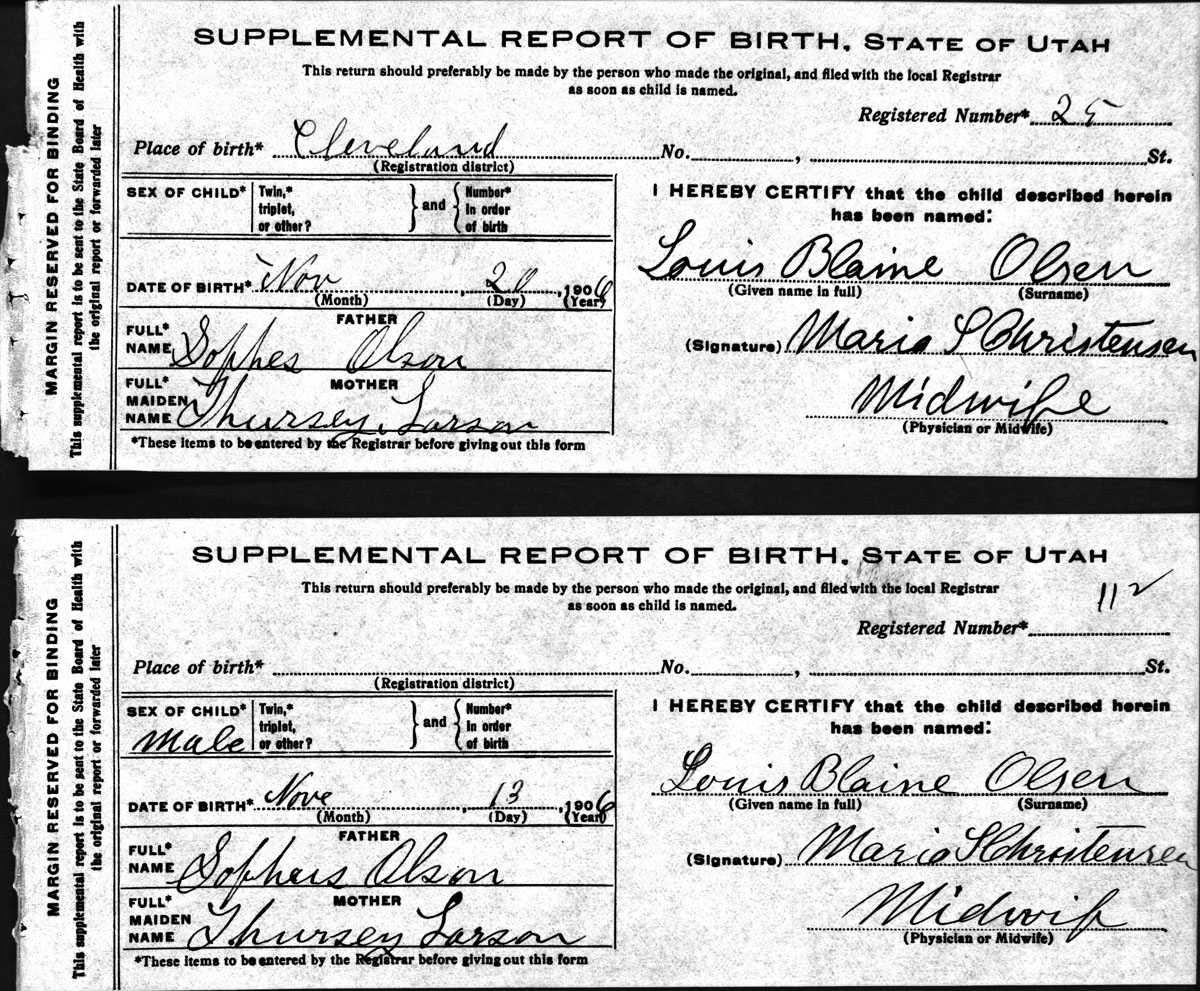 MARGIN RESERVED FOR BINDING
This supplemental report is to be sent to the State Board of Health with
the original report or forwarded later
SUPPLEMENTAL REPORT OF BIRTH. STATE OF UTAH
This return should preferably be made by the person who made the original, and filed with the local Registrar
as soon as child is named.
Registered Number* 25
Place of birth* Cleveland No. , St.
(Registration district)
SEX OF CHILD* Twin,* triplet, or other? } and { Number* in order of birth
I HEREBY CERTIFY that the child described herein
has been named:
Louis Blaine Olsen
(Given name in full) (Surname)
DATE OF BIRTH* Nov , 20 , 1906
(Month) (Day) (Year)
FATHER
FULL* NAME Sophes Olson
(Signature) Maria S Christensen
MOTHER
FULL* MAIDEN NAME Thursey Larson
Midwife
(Physician or Midwife)
*These items to be entered by the Registrar before giving out this form
MARGIN RESERVED FOR BINDING
This supplemental report is to be sent to the State Board of Health with
the original report or forwarded later
SUPPLEMENTAL REPORT OF BIRTH. STATE OF UTAH
This return should preferably be made by the person who made the original, and filed with the local Registrar
as soon as child is named.
112
Registered Number*
Place of birth* No. , St.
(Registration district)
SEX OF CHILD* Male Twin,* triplet, or other? } and { Number* in order of birth
I HEREBY CERTIFY that the child described herein
has been named:
Louis Blaine Olsen
(Given name in full) (Surname)
DATE OF BIRTH* Nove , 13 , 1906
(Month) (Day) (Year)
FATHER
FULL* NAME Sopheus Olson
(Signature) Maria S Christensen
MOTHER
FULL* MAIDEN NAME Thursey Larson
Midwif
(Physician or Midwife)
*These items to be entered by the Registrar before giving out this form